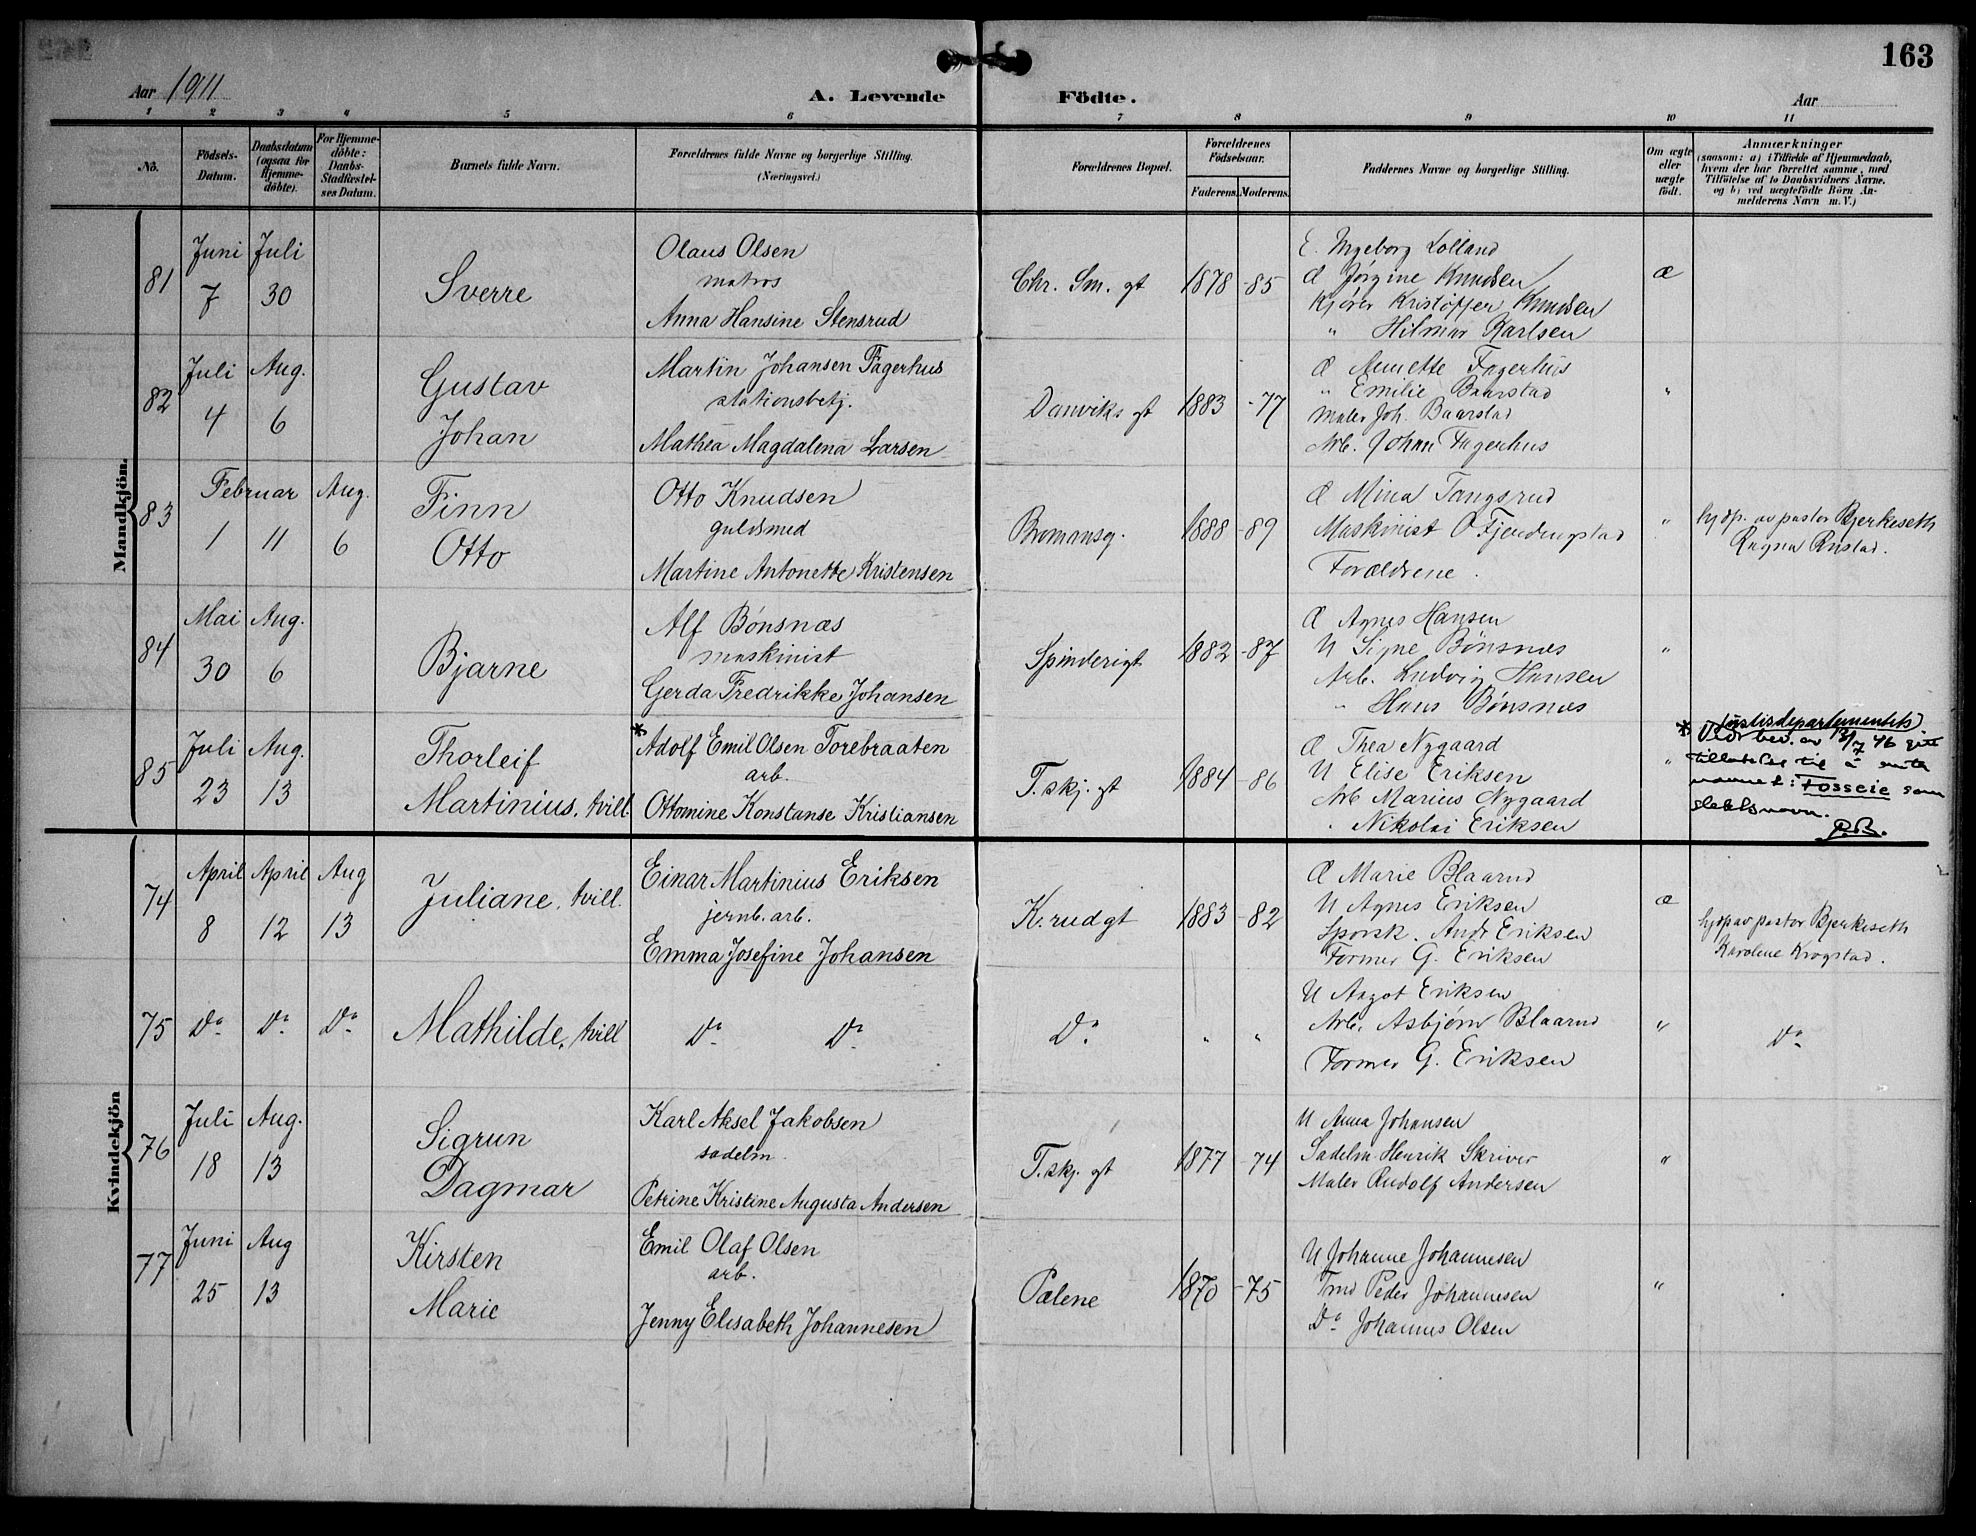 163
Aar 1911
A. Levende Födte.
Aar
1 2 3 4 5 6 7 8 9 10 11
No.
Födsels-
Datum.
Daabsdatum
(ogsaa for
Hjemme-
döbte).
For Hjemme-
döbte:
Daabs-
Stadfæstel-
ses Datum.
Barnets fulde Navn.
Forældrenes fulde Navne og borgerlige Stilling.
(Næringsvei.)
Forældrenes Bopæl.
Forældrenes
Födselsaar.
Faderens. Moderens.
Faddernes Navne og borgerlige Stilling.
Om ægte
eller
uægte
födt.
Anmærkninger
(saasom: a) i Tilfælde af Hjemmedaab,
hvem der har forrettet samme, med
Tilföielse af to Daabsvidners Navne,
og b) ved uægtefödte Börn An-
melderens Navn m. V.)
Mandkjön.
81
Juni Juli
7 30
Sverre
Olaus Olsen
matros
Anna Hansine Stensrud
Chr. Sm. gt
1878 -85
E. Ingeborg Lolland
Æ Jørgine Knudsen
Kjører Kristoffer Knudsen
" Hilmar Karlsen
æ
82
Juli Aug.
4 6
Gustav
Johan
Martin Johansen Fagerhus
stationsbetj.
Mathea Magdalena Larsen
Danviks gt
1883 -77
Æ Annette Fagerhus
" Emilie Baarstad
Maler Joh. Baarstad
Arb. Johan Fagerhus
"
83
Februar Aug.
1 11 6
Finn
Otto
Otto Knudsen
guldsmed
Martine Antonette Kristensen
Bromansg.
1888 -89
Æ Mina Tangsrud
Maskinist O
Forældrene.
"
hjdp. av pastor Bjerkeseth
Ragna Rustad.
84
Mai Aug.
30 6
Bjarne
Alf Bønsnæs
maskinist
Gerda Fredrikke Johansen
Spinderigt
1882 -87
Æ Agnes Hansen
U Signe Bønsnæs
Arb. Ludvig Hansen
" Hans Bønsnæs
"
85
Juli Aug.
23 13
Thorleif
Martinius, tvill.
* Adolf Emil Olsen Torebraaten
arb.
Ottomine Konstanse Kristiansen
T. skj. gt
1884 -86
Æ Thea Nygaard
U Elise Eriksen
Arb Marius Nygaard
" Nikolai Eriksen
"
justisdepartementets
* Ved bev. av 13/7 46 gitt
tillatelse til å anta
navnet: Fosseie som
slektsnavn.
P.B.
Kvindekjön
74
April April Aug
8 12 13
Juliane, tvill.
Einar Martinius Eriksen
jernb. arb.
Emma Josefine Johansen
K. rudgt
1883 -82
Æ Marie Blaarud
U Agnes Eriksen
Sporsk. Andr Eriksen
Former G. Eriksen
æ
hjdp av pastor Bjerkeseth
Karolene Krogstad.
75
Do Do Do
Mathilde, tvill
Do Do
Do
" "
U Aagot Eriksen
Arb. Asbjørn Blaarud
Former G. Eriksen
"
Do
76
Juli Aug.
18 13
Sigrun
Dagmar
Karl Aksel Jakobsen
sadelm.
Petrine Kristine Augusta Andersen
T. skj. gt
1877 -74
U Anna Johansen
Sadelm Henrik Skriver
Maler Rudolf Andersen
"
77
Juni Aug
25 13
Kirsten
Marie
Emil Olaf Olsen
arb.
Jenny Elisabeth Johannesen
Pælene
1870 -75
U Johanne Johannesen
Tmd Peder Johannesen
Do Johannes Olsen
"